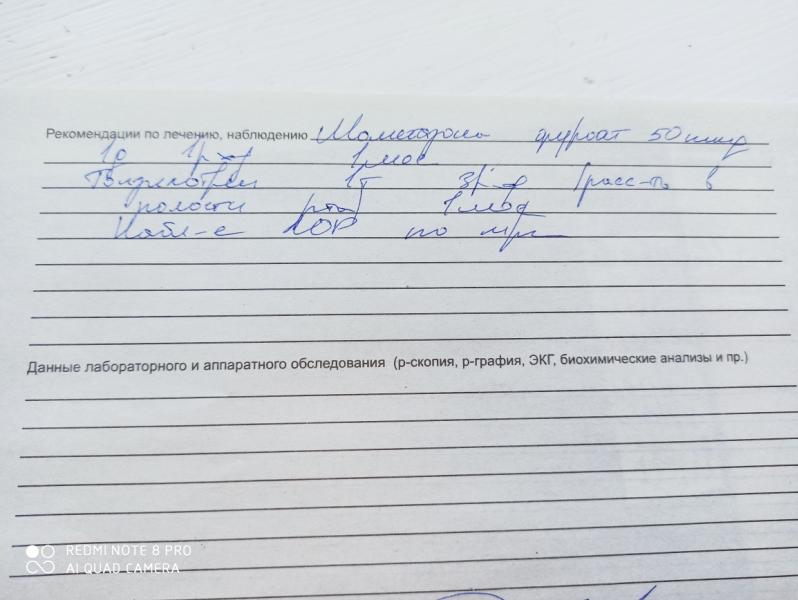 Рекомендации по лечению, наблюдению Мометазона фуроат 50 мкг
1д 1р-д 1 мес
1т 3р-д (расс-ть в
полости рта) 1 мес
Набл-е ЛОР по м/ж
Данные лабораторного и аппаратного обследования (р-скопия, р-графия, ЭКГ, биохимические анализы и пр.)
REDMI NOTE 8 PRO
AI QUAD CAMERA